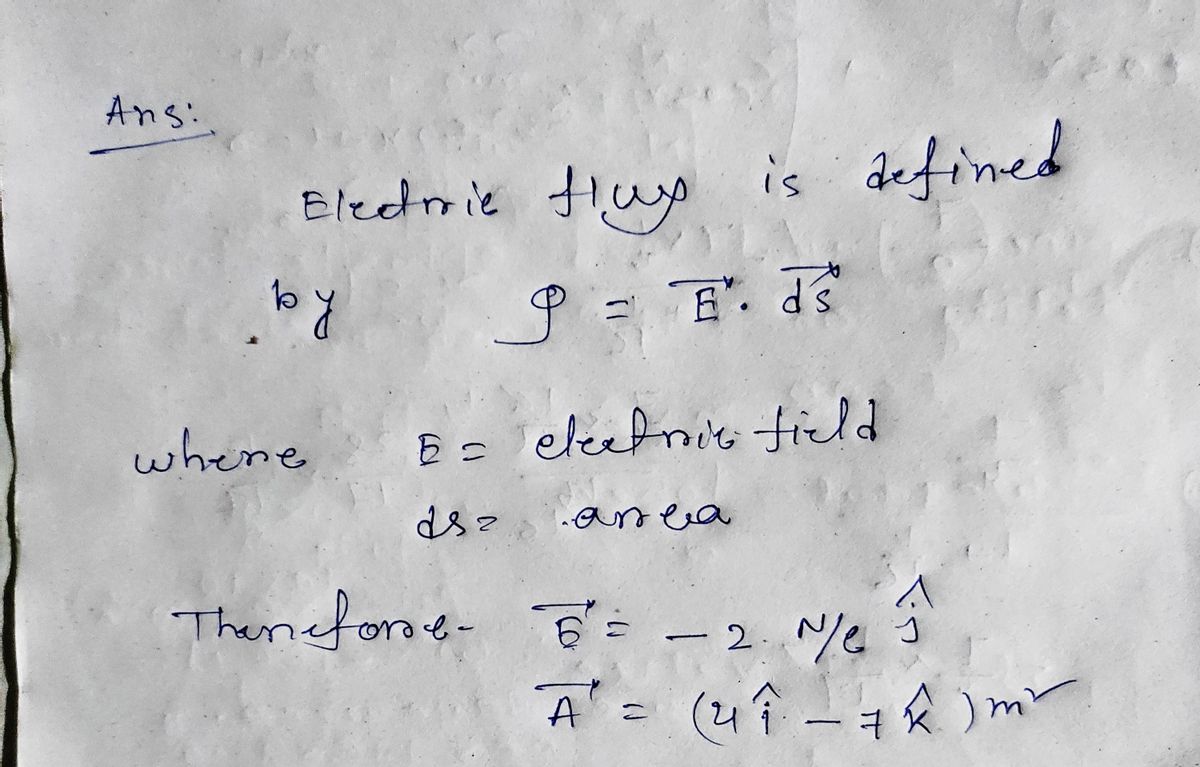 Ans:
Electric flux is defined
by φ = E⃗ . ds⃗
where E = electric field
ds = area
Therefore - E⃗ = - 2 N/c ĵ
A⃗ = (4 î - 7 k̂ ) m²